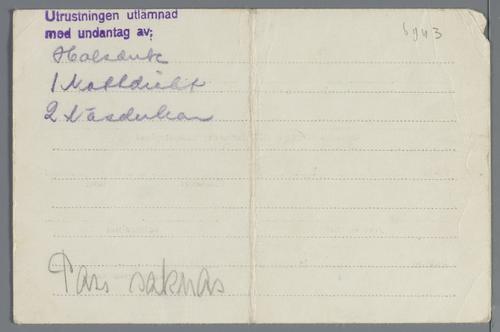 Utrustningen utlämnad
med undantag av:
6943
Halsduk
1 Nattdräkt
2 Näsdukar
Pass saknas